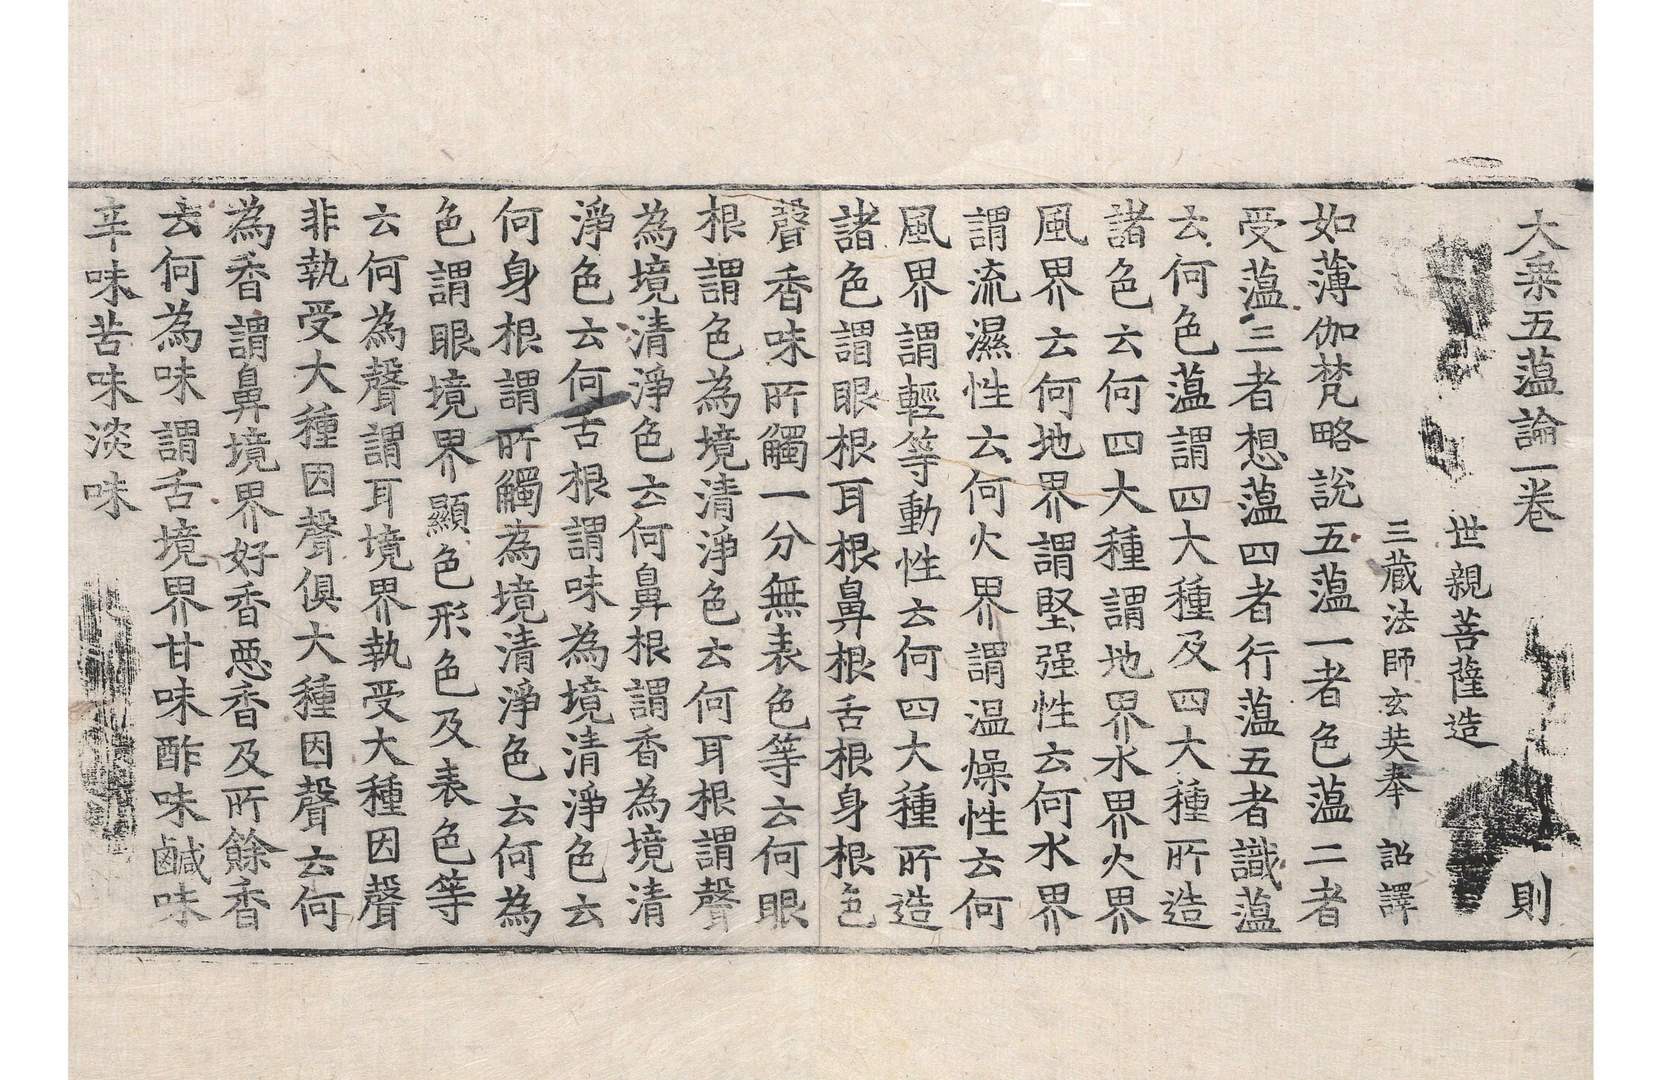 大乗五蕰論一巻 則
世親菩薩造
三蔵法師玄奘奉 詔譯
如薄伽梵略說五蕰一者色蕰二者
受蕰三者想蕰四者行蕰五者識蕰
云何色蕰謂四大種及四大種所造
諸色云何四大種謂地界水界火界
風界云何地界謂堅强性云何水界
謂流濕性云何火界謂温燥性云何
風界謂輕等動性云何四大種所造
諸色謂眼根耳根鼻根舌根身根色
聲香味所觸一分無表色等云何眼
根謂色為境清淨色云何耳根謂聲
為境清淨色云何鼻根謂香為境清
淨色云何舌根謂味為境清淨色云
何身根謂所觸為境清淨色云何為
色謂眼境界顯色形色及表色等
云何為聲謂耳境界執受大種因聲
非執受大種因聲俱大種因聲云何
為香謂鼻境界好香惡香及所餘香
云何為味謂舌境界甘味酢味鹹味
辛味苦味淡味